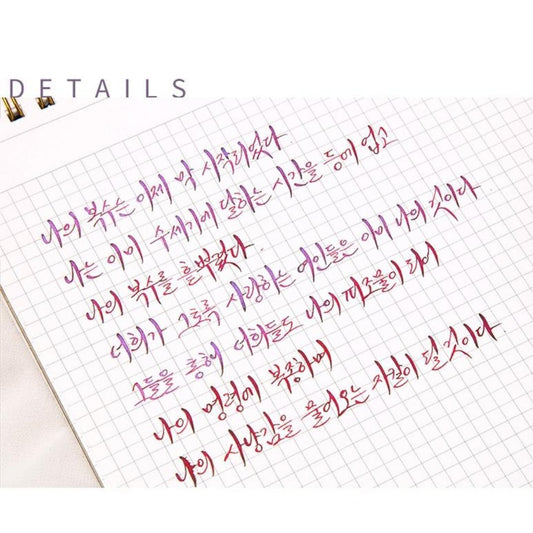 DETAILS
나의 복수는 이제 막 시작되었다
나는 이미 수세기에 달하는 시간을 등에 업고
나의 복수를 흩뿌렸다.
너희가 그토록 사랑하는 여인들은 이미 나의 것이다
그들을 통해 너희들도 나의 피조물이 되어
나의 명령에 복종하며
나의 사냥감을 물어오는 자칼이 될 것이다